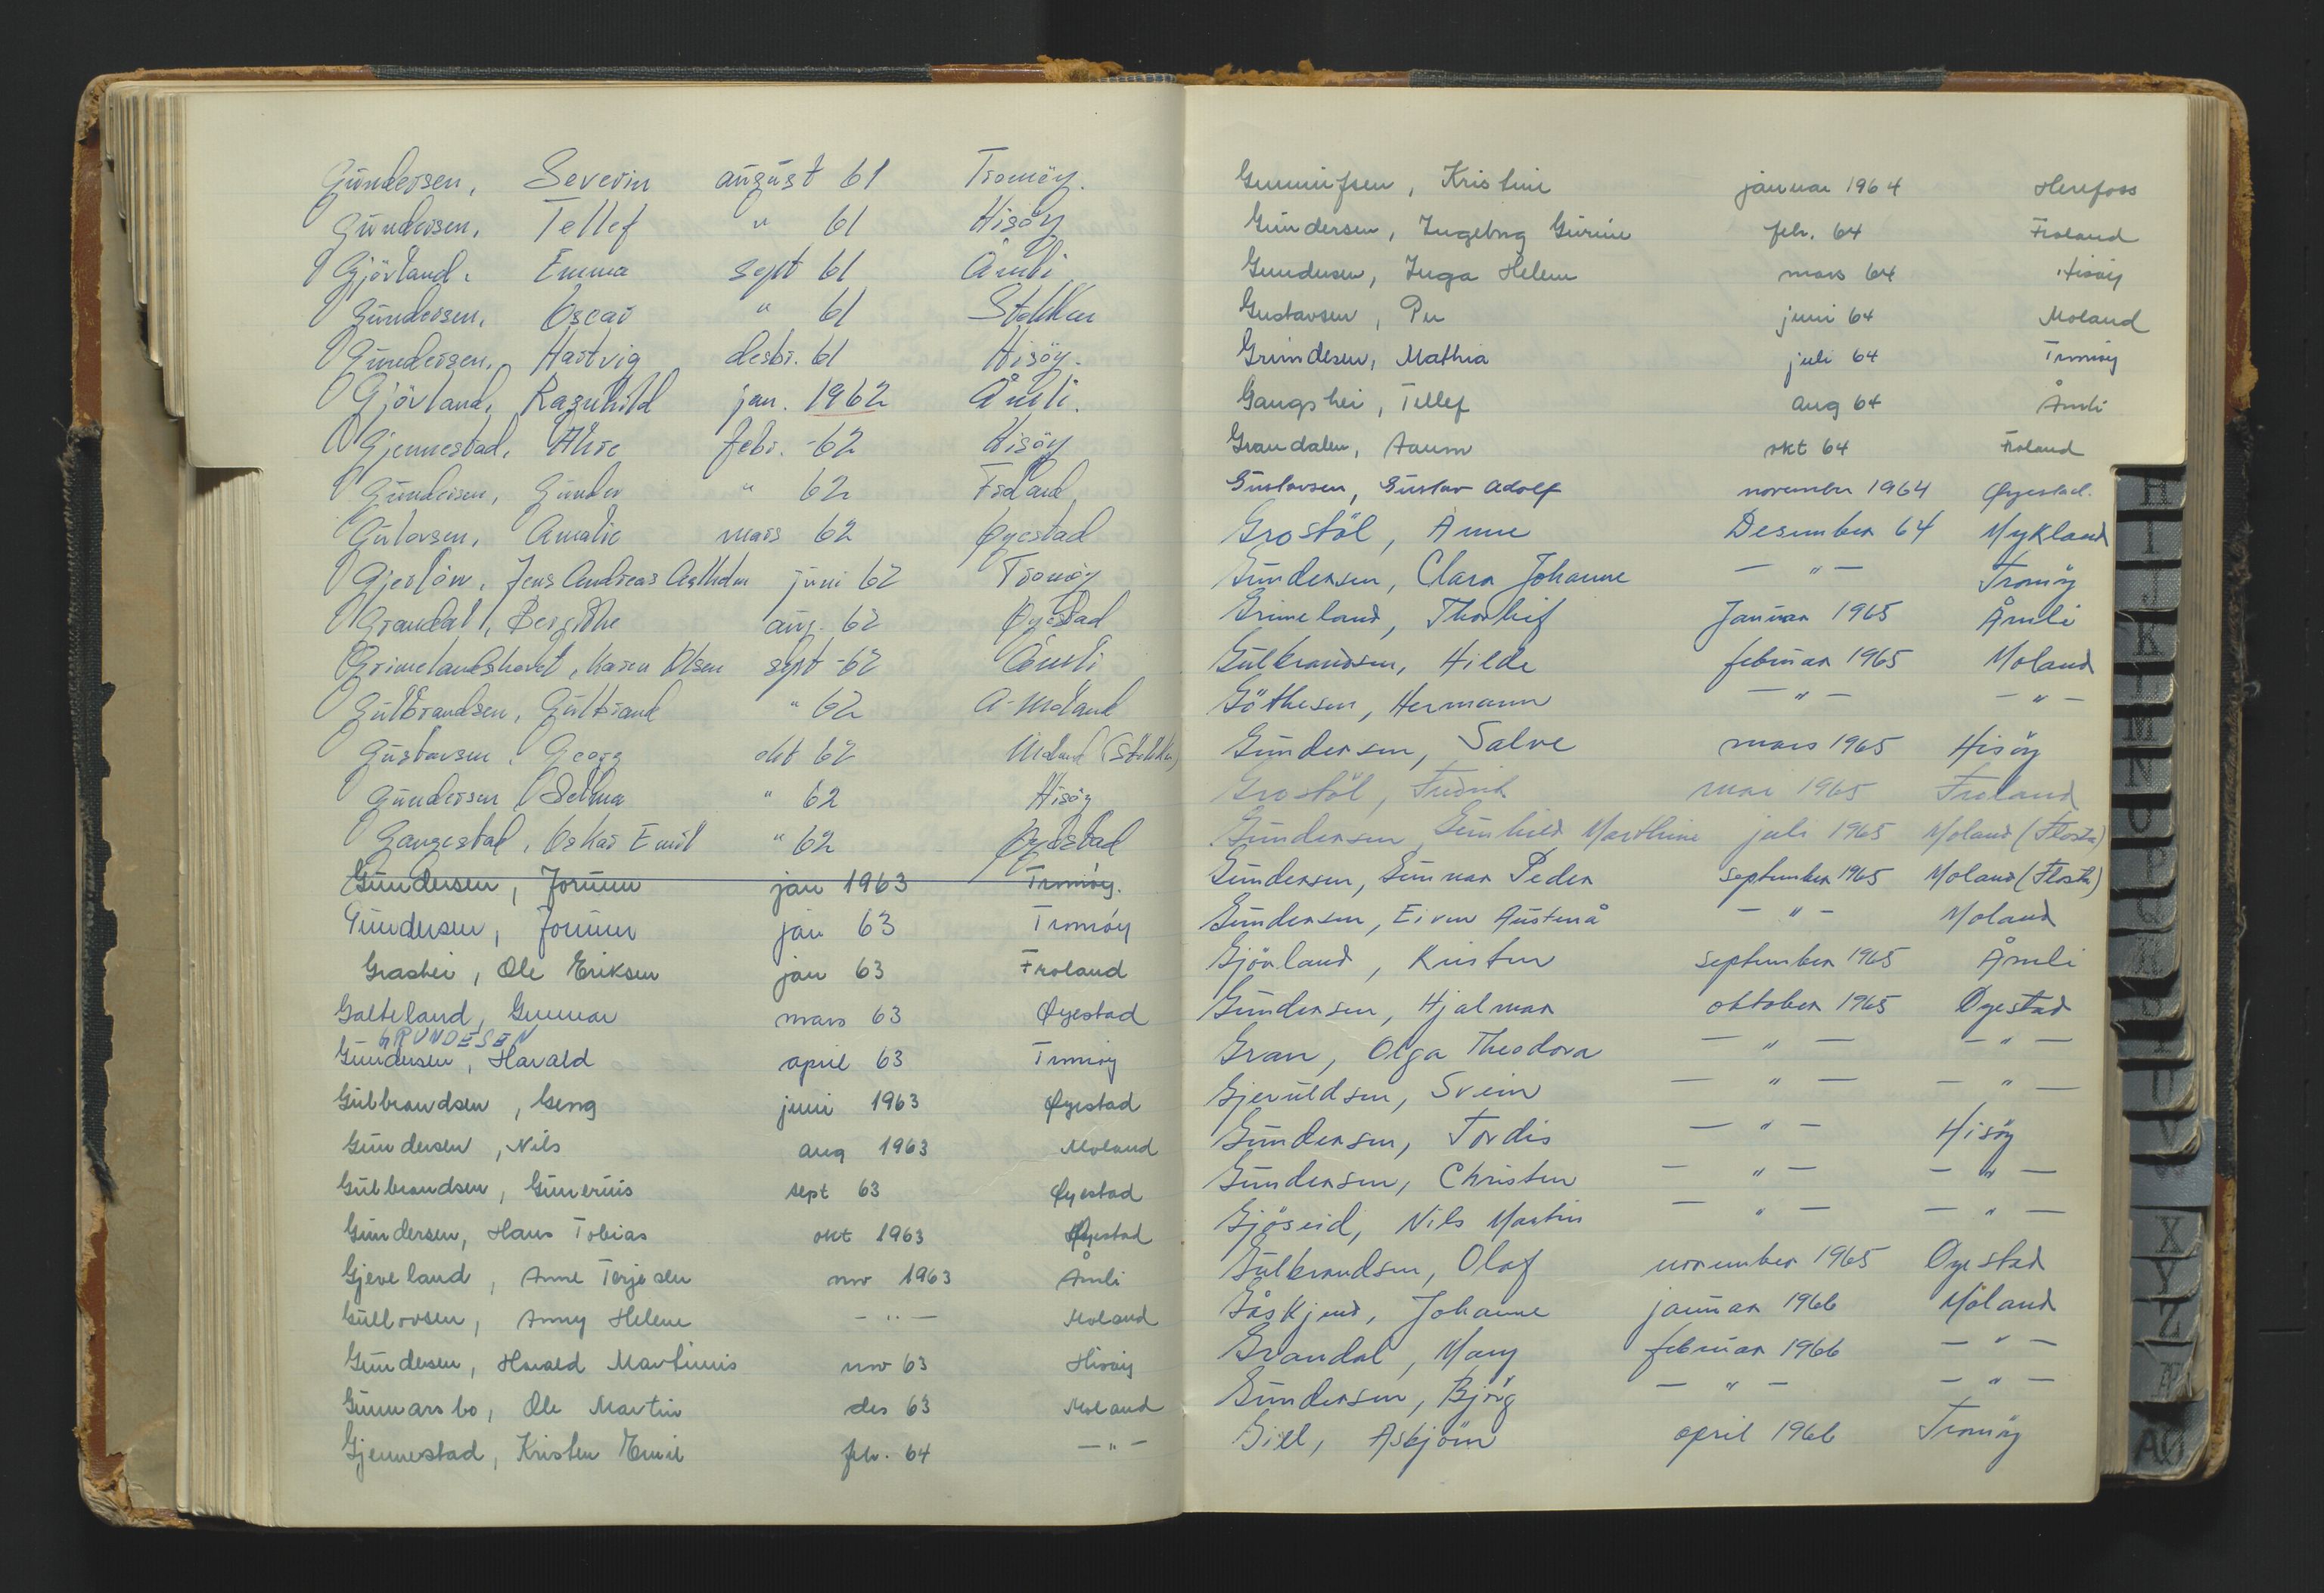 Gundersen, Severin august 61 Tromöy.
Gundersen, Tellef " 61 Hisöy
Gjövland, Emma sept 61 Åmli
Gundersen, Oscar " 61 Stokken
Gundersen, Hartvig desbr. 61 Hisöy.
Gjövland, Ragnhild jan. 1962 Åmli.
Gjennestad, febr. -62 Hisöy
Gundersen, Gunder " 62 Froland
Amalie mars 62 Øyestad
Jens Andreas juni 62 Tromöy
Grandal, Bergithe aug. 62 Øyestad
Karen Olsen sept -62 Åmli
Gulbrandsen, Gulbrand " 62 A-Moland
Gustavsen, Georg okt 62 Moland (Stokken)
Gundersen, Selma " 62 Hisöy
Gangestad, Oskar Emil " 62 Øyestad
Gundersen, Jorunn jan 1963 Tromöy.
Gundersen, Jorunn jan 63 Tromöy
Grashei, Ole Eriksen jan 63 Froland
Galteland, Gunnar mars 63 Øyestad
GRUNDESEN
Gundersen, Harald april 63 Tromöy
Gulbrandsen, Georg juni 1963 Øyestad
Gundersen, Nils aug 1963 Moland
Gulbrandsen, Gunerius sept 63 Øyestad
Gundersen, Hans Tobias okt 1963 Øyestad
Gjeveland, Anne Terjesen nov 1963 Åmli
Gullovsen, Anny Helene — " — Moland
Gundersen, Harald Martinius nov 63 Hisöy
Gunnarsbo, Ole Martin des 63 Moland
Gjennestad, Kristen Emil feb. 64 — " —
Kristine januar 1964 Herefoss
Gundersen, Ingeborg Gurine feb. 64 Froland
Gundersen, Inga Helene mars 64 Hisöy
Gustavsen, Per juni 64 Moland
Grundesen, Mathia juli 64 Tromöy
Gangshei, Tellef aug 64 Åmli
Grandalen, Aanon okt 64 Froland
Gustavsen, Gustav Adolf november 1964 Øyestad.
Grostöl, Anne Desember 64 Mykland
Gundersen, Clara Johanne — " — Tromöy
Grimeland, Thorleif Januar 1965 Åmli
Gulbrandsen, Hilde februar 1965 Moland
Göthesen, Hermann — " — — " —
Gundersen, Salve mars 1965 Hisöy
Grostöl, Fredrik mai 1965 Froland
Gundersen, Gunhild Marthine juli 1965 Moland (Flosta)
Gundersen, Gunnar Peder september 1965 Moland (Flosta)
Gundersen, Eivin Austenå — " — Moland
Gjövland, Kristen september 1965 Åmli
Gundersen, Hjalmar oktober 1965 Øyestad
Gran, Olga Theodora — " — — " —
Gjeruldsen, Svein — " — — " —
Gundersen, Tordis — " — Hisöy
Gundersen, Christen — " — — " —
Gjöseid, Nils Martin — " — — " —
Gulbrandsen, Olaf november 1965 Øyestad
Gåskjend, Johanne januar 1966 Moland
Grandal, Mary februar 1966 — " —
Gundersen, Björg — " — — " —
Giel, Asbjörn april 1966 Tromöy
H
I
J
K
L
M
N
O
P
Q
R
U
V
X
Y
Z
Æ
AØ